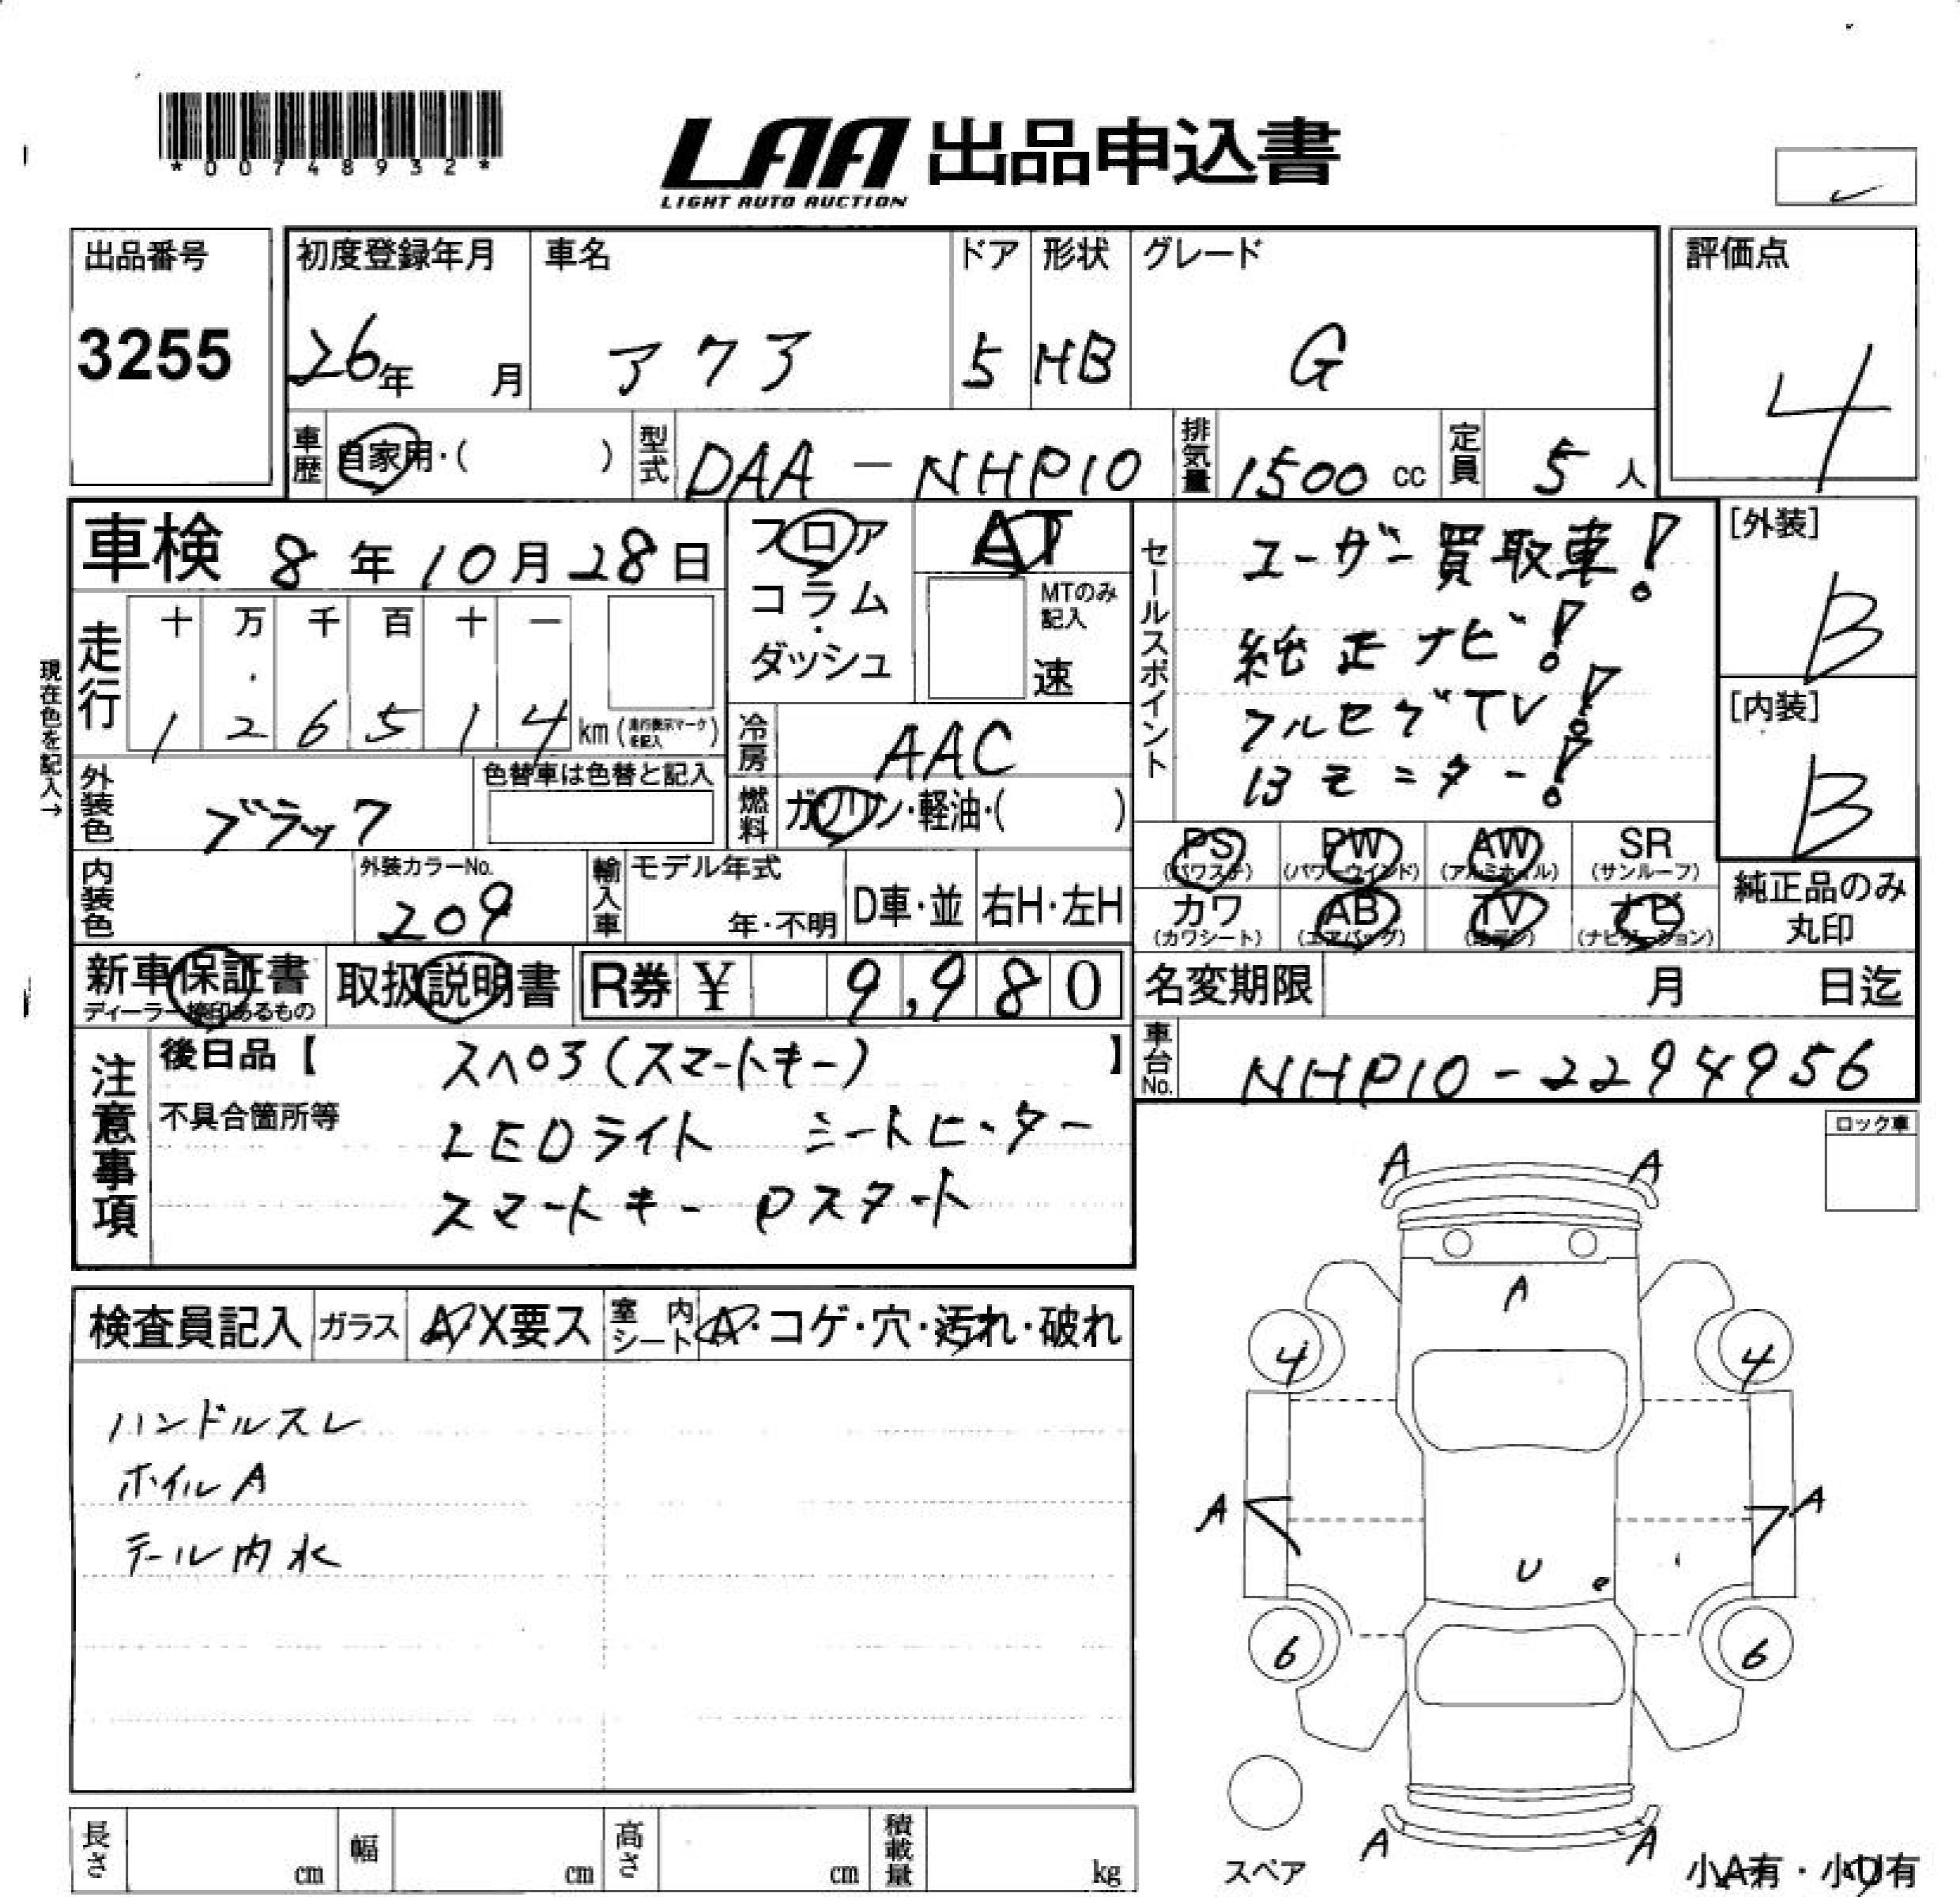 *00748932*
LAA 出品申込書
LIGHT AUTO AUCTION
出品番号
3255
初度登録年月
26年 月
車名
アクア
ドア
5
形状
HB
グレード
G
評価点
4
車歴 自家用・( )
型式 DAA-NHP10
排気量 1500 cc
定員 5 人
車検 8年10月28日
フロア
コラム
・
ダッシュ
AT
MTのみ
記入
速
セールスポイント
ユーザー買取車!
純正ナビ!
フルセグTV!
Bモニター!
[外装]
B
[内装]
B
現在色を記入→
走行
十 万 千 百 十 一
1 2 6 5 1 4 km (走行表示マークを記入)
冷房 AAC
燃料 ガソリン・軽油・( )
外装色 ブラック
色替車は色替と記入
内装色
外装カラーNo.
209
輸入車
モデル年式
年・不明
D車・並
右H・左H
PS (パワステ)
PW (パワーウインド)
AW (アルミホイル)
SR (サンルーフ)
カワ (カワシート)
AB (エアバッグ)
TV
ナビ (ナビゲーション)
純正品のみ
丸印
新車保証書
ディーラー捺印あるもの
取扱説明書
R券 ¥ 9,980
名変期限 月 日迄
車台No. NHP10-2294956
注意事項
後日品【 スペ03(スマートキー) 】
不具合箇所等
LEDライト シートヒーター
スマートキー Pスタート
ロック車
検査員記入
ガラス A・X要ス
室内シート A・コゲ・穴・汚れ・破れ
ハンドルスレ
ホイルA
テール内水
A A
A
4 4
A A
U
6 6
A A
スペア
小A有・小U有
長さ cm
幅 cm
高さ cm
積載量 kg